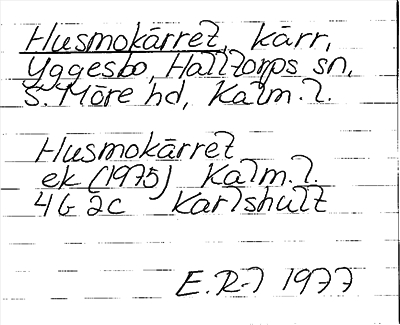 Husmokärret, kärr,
Yggesbo, Halltorps sn,
S. Möre hd, Kalm. l.
Husmokärret
ek (1975) Kalm. l.
4G 2c Karlshult
E. R-l 1977